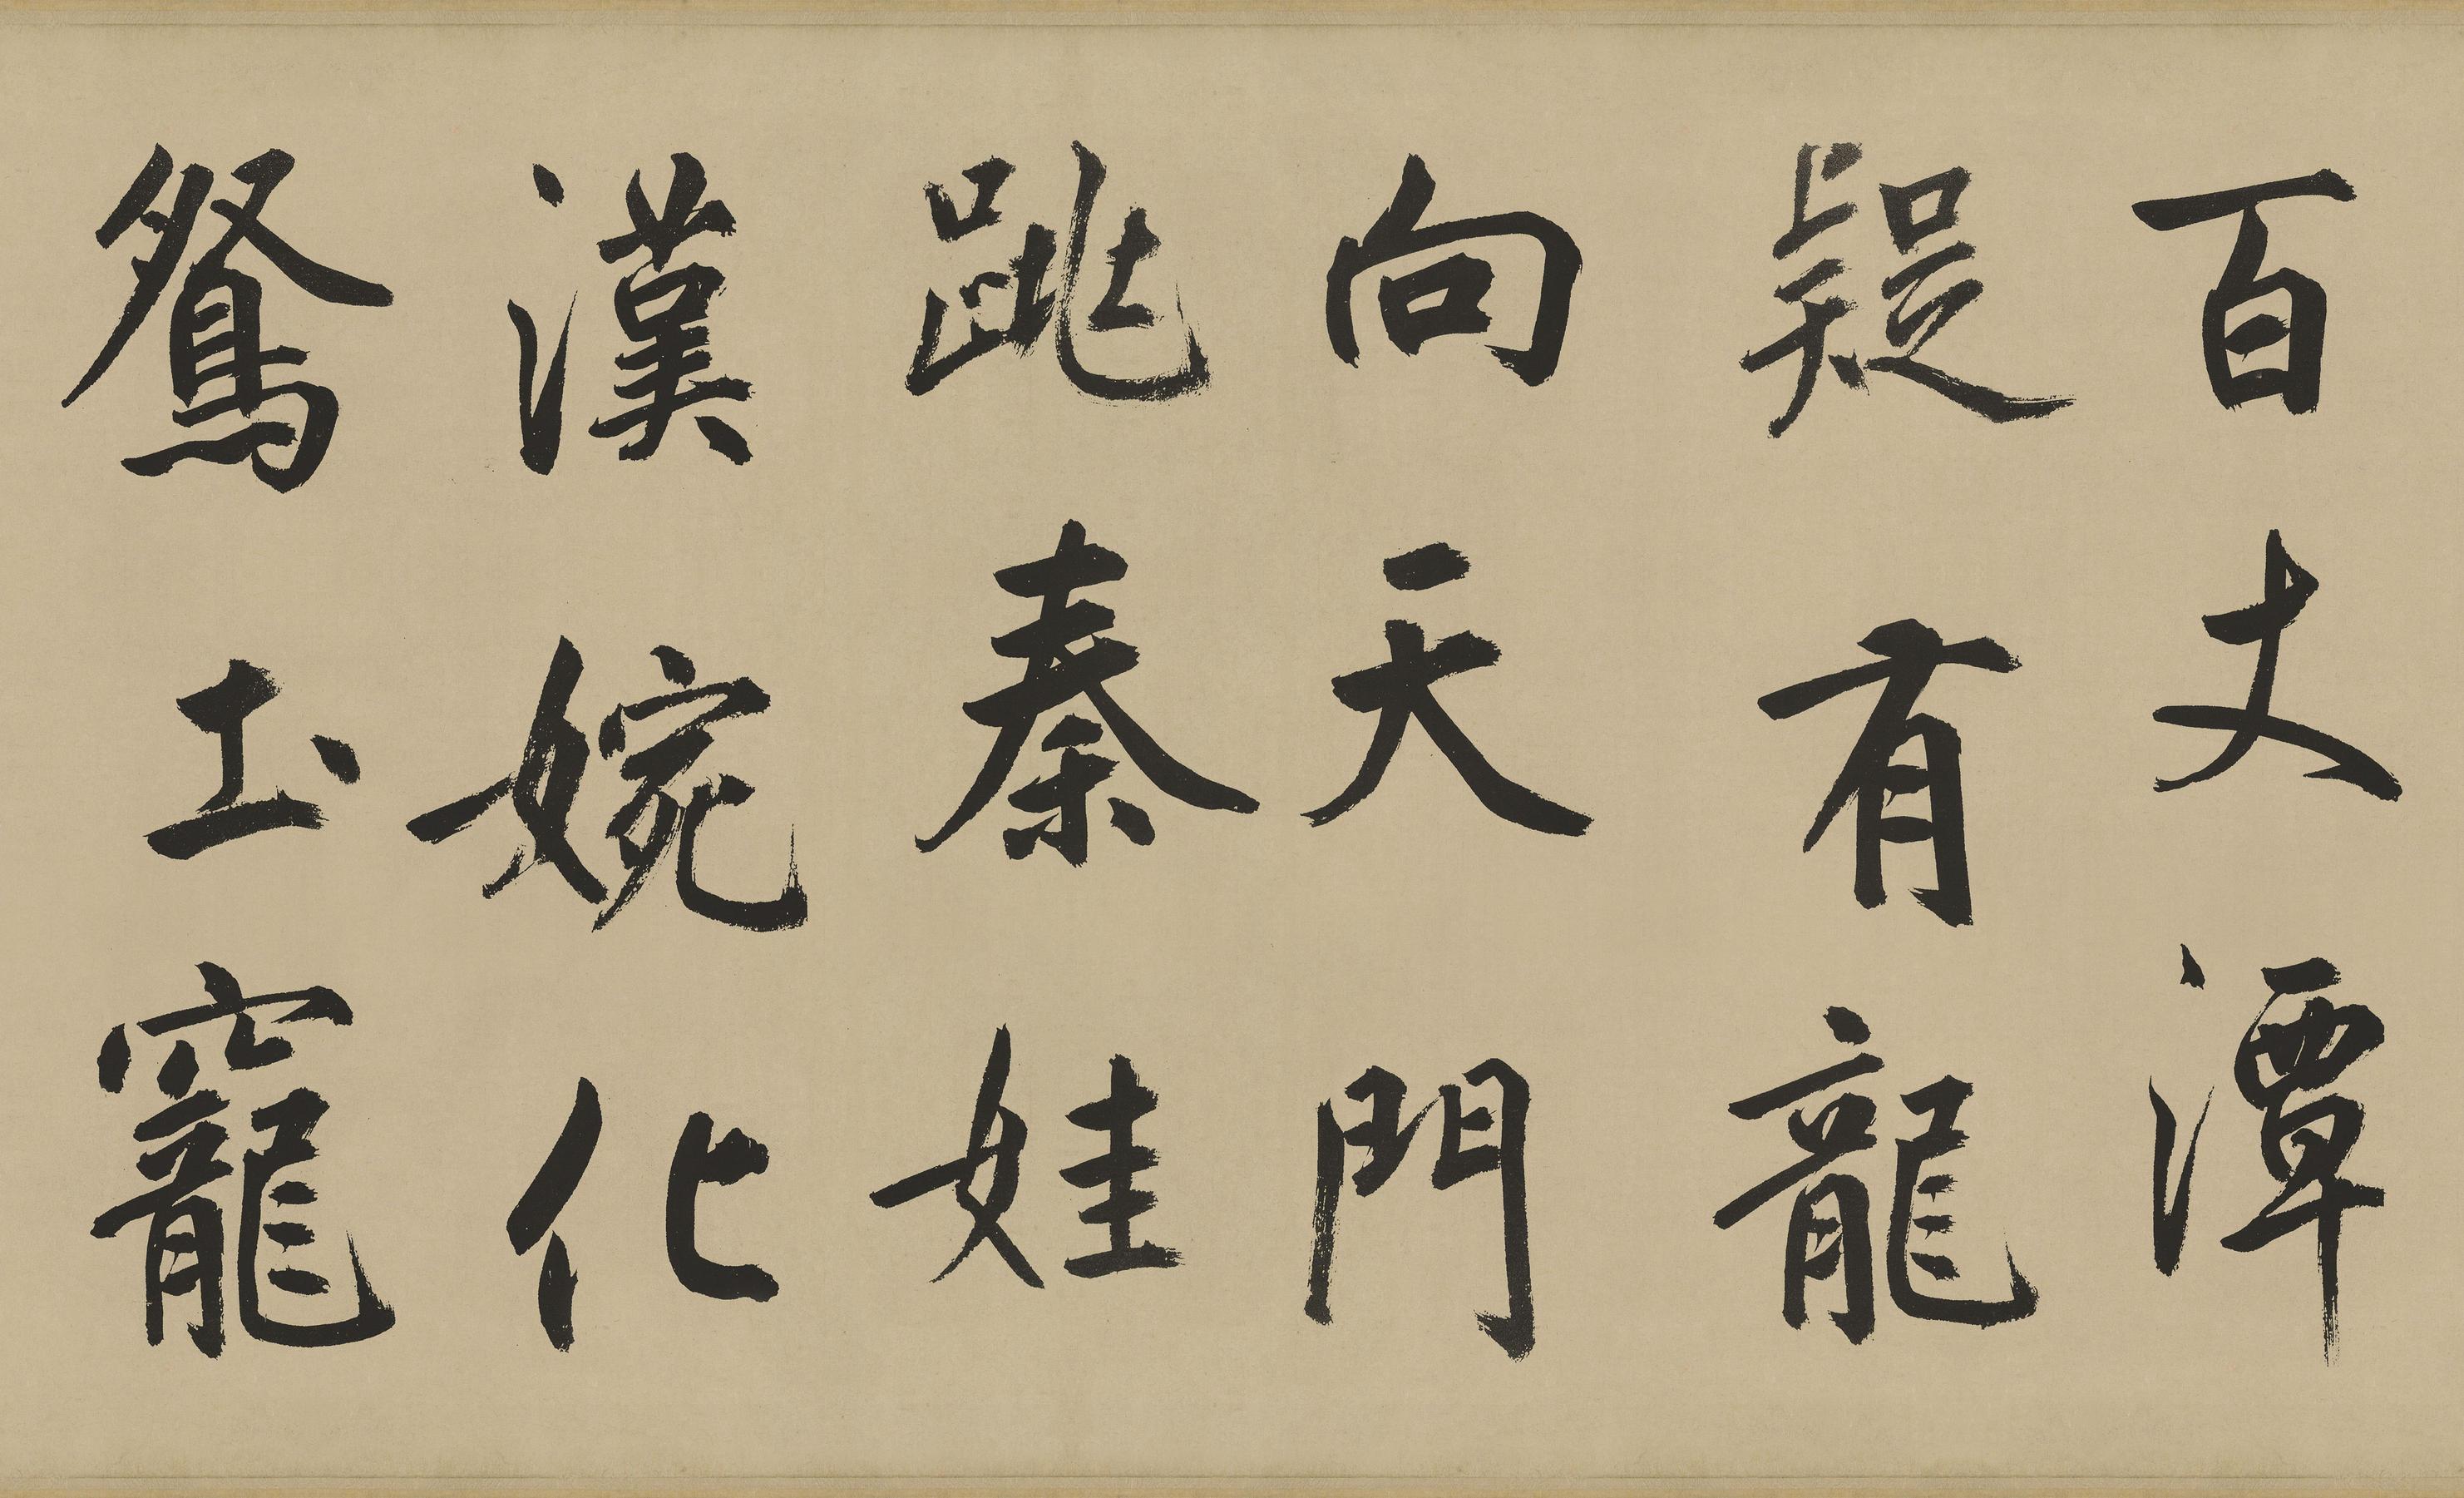 百丈潭
疑有龍
向天門
跳秦娃
漢婉化
鴛土竉